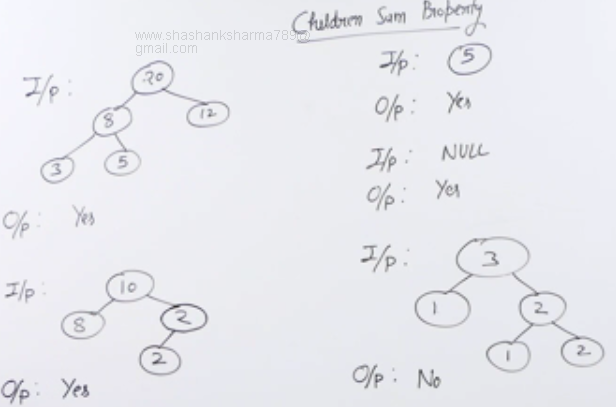 Children Sum Property
www.shashanksharma789@
gmail.com
I/p:
20
8
12
3
5
O/p: Yes
I/p: 5
O/p: Yes
I/p: NULL
O/p: Yes
I/p:
10
8
2
2
O/p: Yes
I/p:
3
1
2
1
2
O/p: No